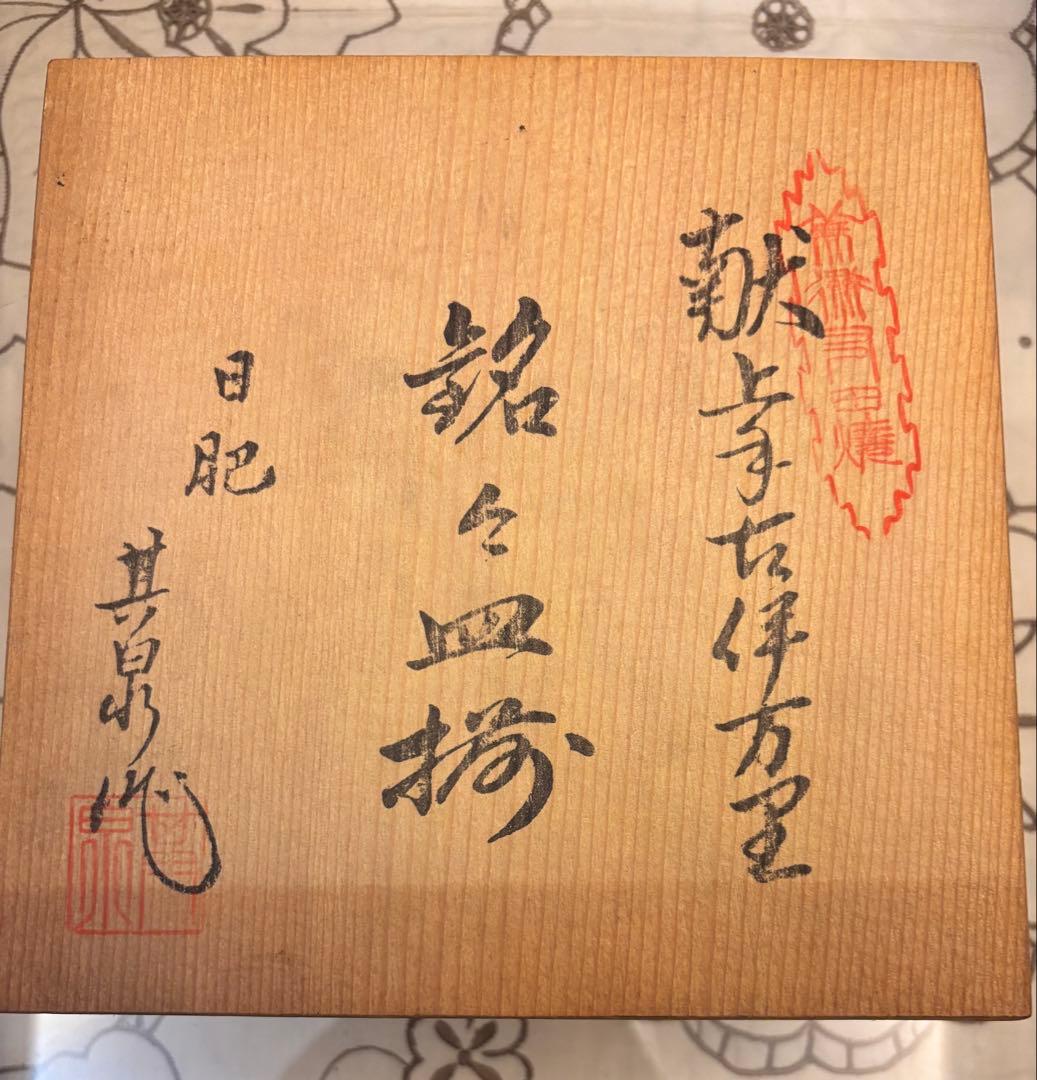 献上手古伊万里
銘々皿揃
日肥
其泉作